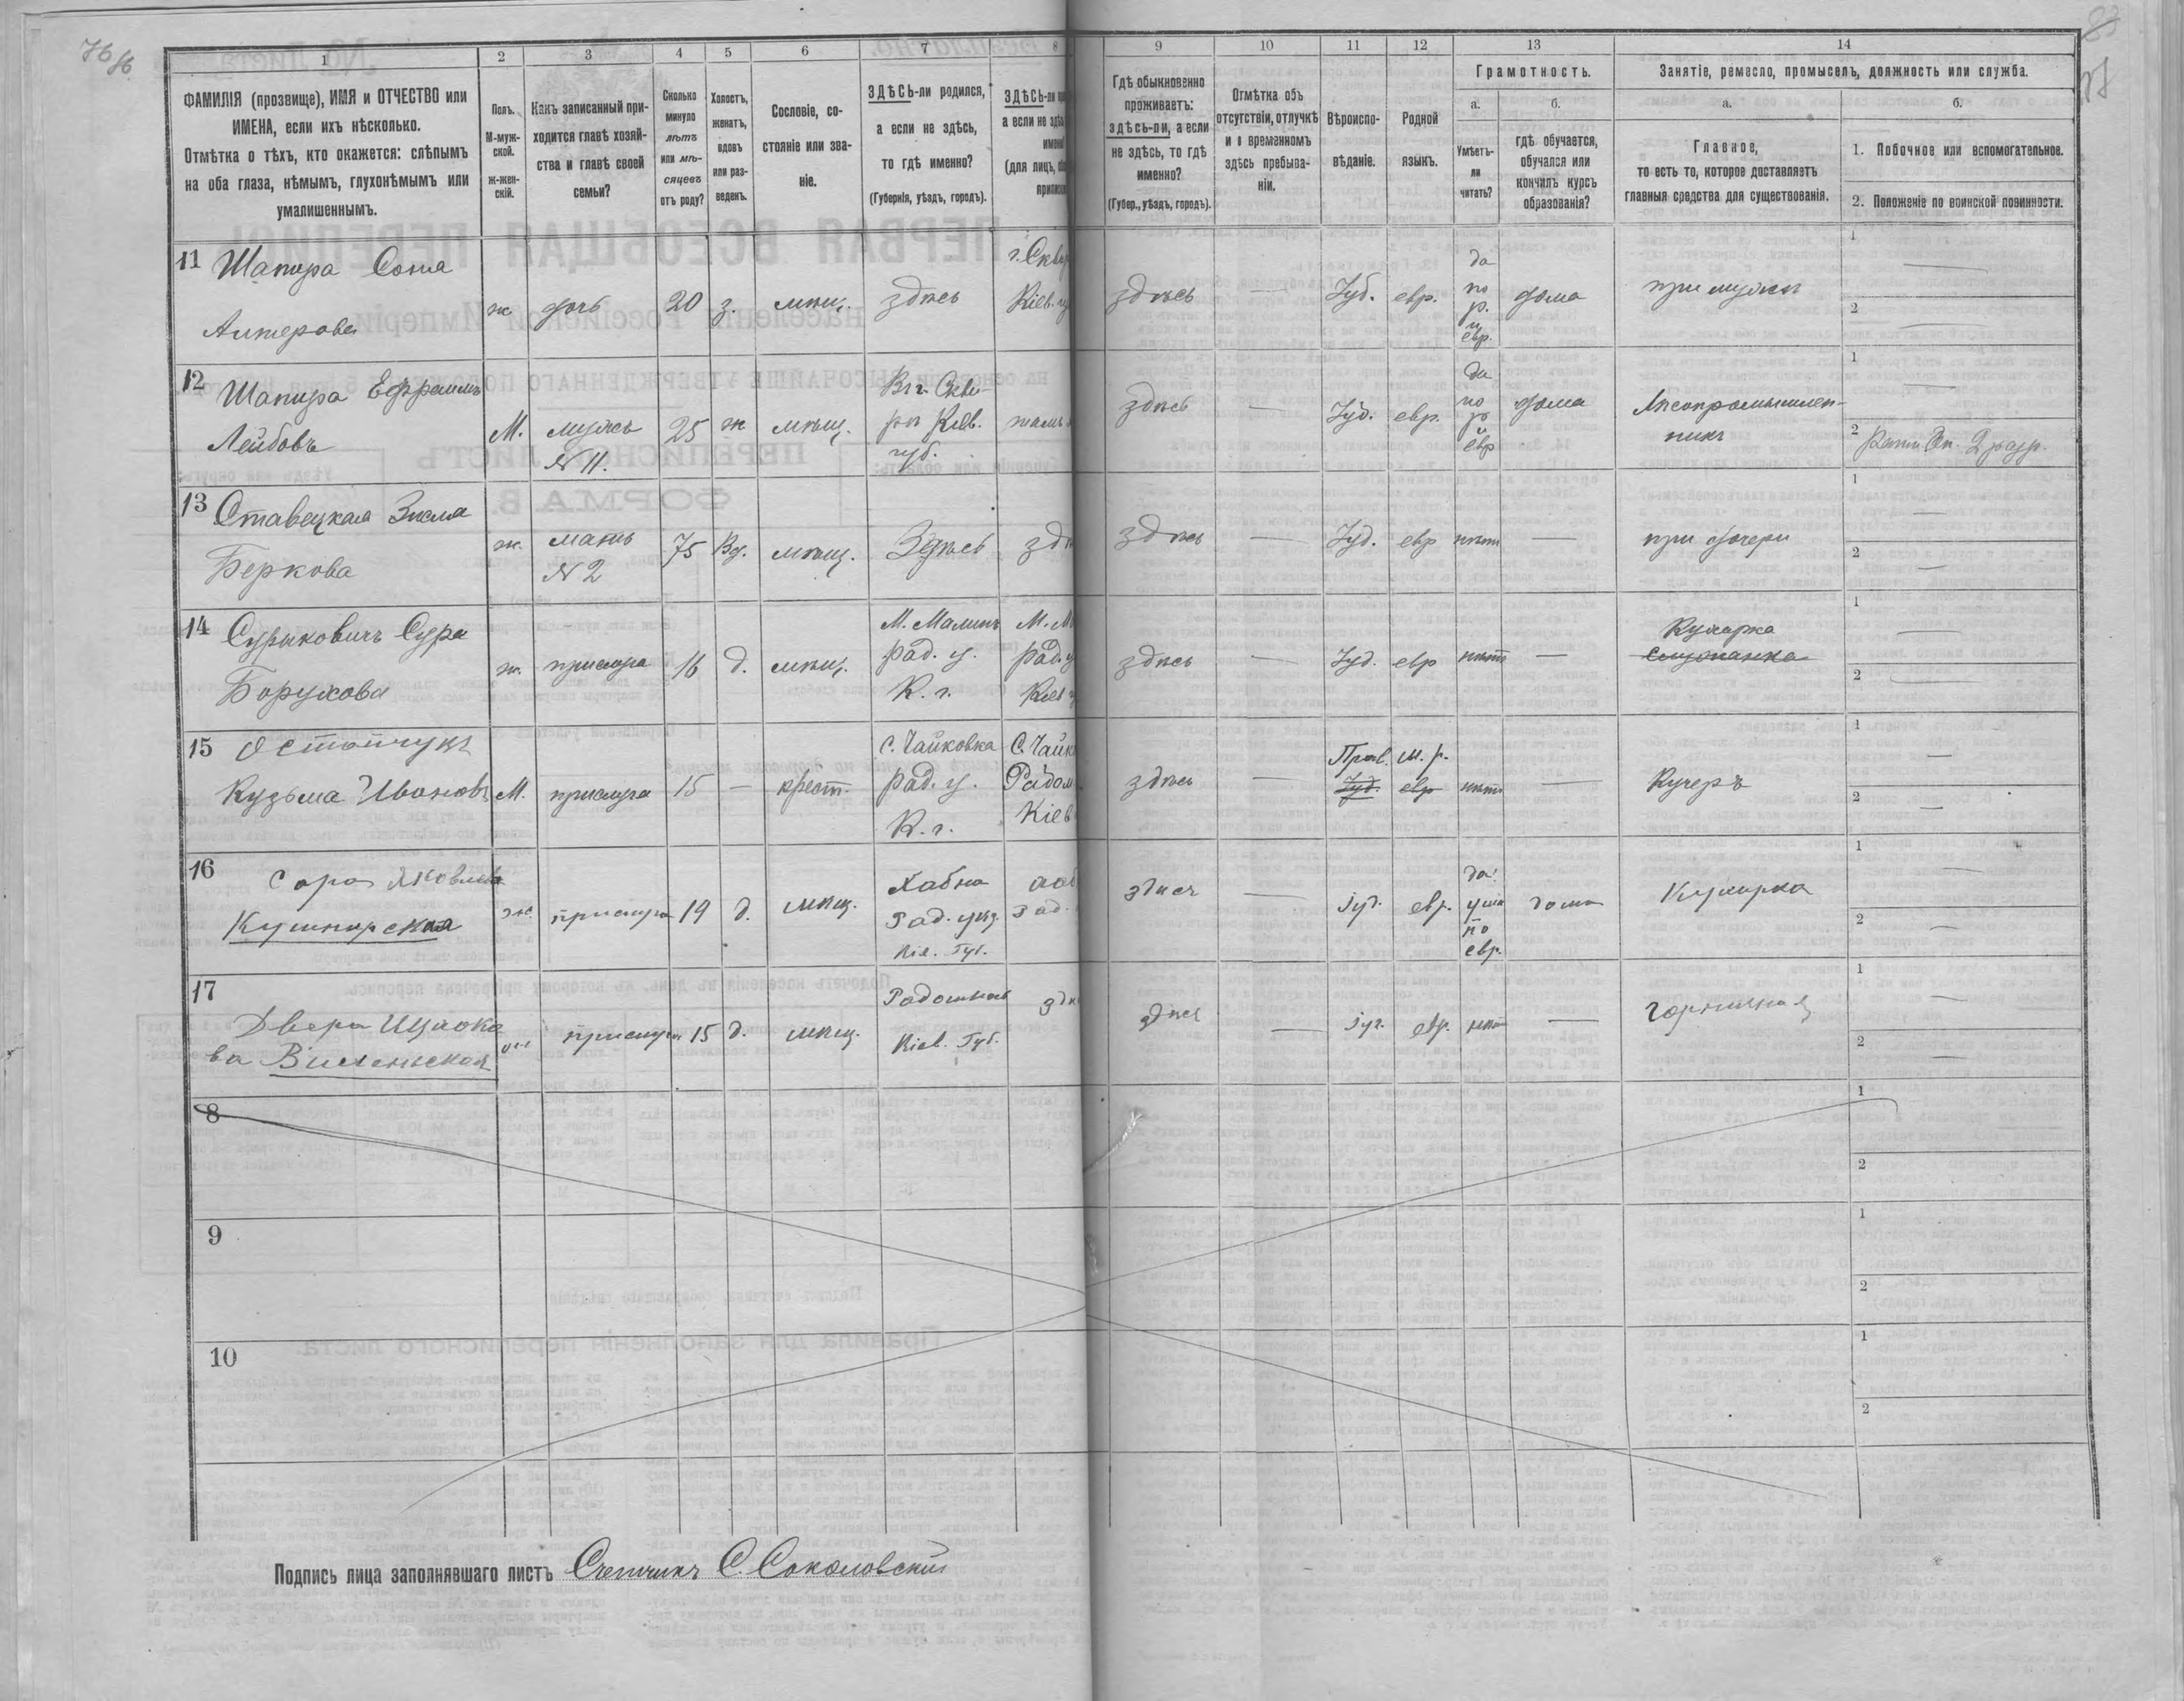 76 86
87
1 2 3 4 5 6 7 8 9 10 11 12 13 14
ФАМИЛІЯ (прозвище), ИМЯ и ОТЧЕСТВО или
ИМЕНА, если ихъ нѣсколько.
Отмѣтка о тѣхъ, кто окажется: слѣпымъ
на оба глаза, нѣмымъ, глухонѣмымъ или
умалишеннымъ.
Полъ.
М-муж-
ской.
ж-жен-
скій.
Какъ записанный при-
ходится главѣ хозяй-
ства и главѣ своей
семьи?
Сколько
минуло
лѣтъ
или мѣ-
сяцевъ
отъ роду?
Холостъ,
женатъ,
вдовъ
или раз-
веденъ.
Сословіе, со-
стояніе или зва-
ніе.
ЗДѢСЬ-ли родился,
а если не здѣсь,
то гдѣ именно?
(Губернія, уѣздъ, городъ).
ЗДѢСЬ-ли
а если не здѣ
(для лицъ,
Гдѣ обыкновенно
проживаетъ:
здѣсь-ли, а если
не здѣсь, то гдѣ
именно?
(Губер., уѣздъ, городъ).
Отмѣтка объ
отсутствіи, отлучкѣ
и о временномъ
здѣсь пребыва-
ніи.
Вѣроиспо-
вѣданіе.
Родной
языкъ.
Грамотность.
а. б.
Умѣетъ-
ли
читать?
гдѣ обучается,
обучался или
кончилъ курсъ
образованія?
Занятіе, ремесло, промыселъ, должность или служба.
а. б.
Главное,
то есть то, которое доставляетъ
главныя средства для существованія.
1. Побочное или вспомогательное.
2. Положеніе по воинской повинности.
11 Шапира Соня
Алтерова
ж дочь 20 з. мѣщ. здѣсь
г. Сквир
Кіев.
здѣсь — Іуд. евр.
да
по
р.
и
евр.
дома при мужѣ
1 —
2 —
12 Шапира Ефраимъ
Лейбовъ
М. мужъ
№ 11.
25 ж мѣщ.
Въ г. Скви-
рѣ Кіев.
губ.
тамъ
здѣсь — Іуд. евр.
да
по
р
и
евр
дома
Лѣсопромышлен-
никъ
1 —
2 Ратн. Оп. 2 разр.
13 Ставецкая Зисля
Беркова
ж. мать
№ 2
75 Вд. мѣщ. Здѣсь здѣ
здѣсь — Іуд. евр нѣтъ — при дочери
1 —
2 —
14 Сурыковичъ Сура
Борухова
ж. прислуга 16 д. мѣщ.
М. Малинъ
Рад. у.
К. г.
М. М
Рад. у
Кіев
здѣсь — Іуд. евр нѣтъ —
Кухарка
служанка
1 —
2 —
15 Остапчукъ
Кузьма Ивановъ
М. прислуга 15 — крест.
С. Чайковка
Рад. у.
К. г.
С. Чайк
Радом
Кіев
здѣсь —
Прав. м. р.
Іуд. евр нѣтъ — Кучеръ
1 —
2 —
16 Сара Яковлева
Кушнирская
ж. прислуга 19 д. мѣщ.
Хабна
Рад. уѣз.
Кіе. Губ.
Рад.
здѣсь — іуд. евр.
да
по
евр.
дома Кухарка
1 —
2 —
17 Двера Ицхоко
ва Виленьская
прислуга 15 д. мѣщ.
Радомысль
Кіев. Губ.
здѣ
здѣсь — іуд. евр. нѣтъ — Горничная
1 —
2 —
8
1
2
9
1
2
10
1
2
Подпись лица заполнявшаго листъ Счетчикъ С. Соколовскій